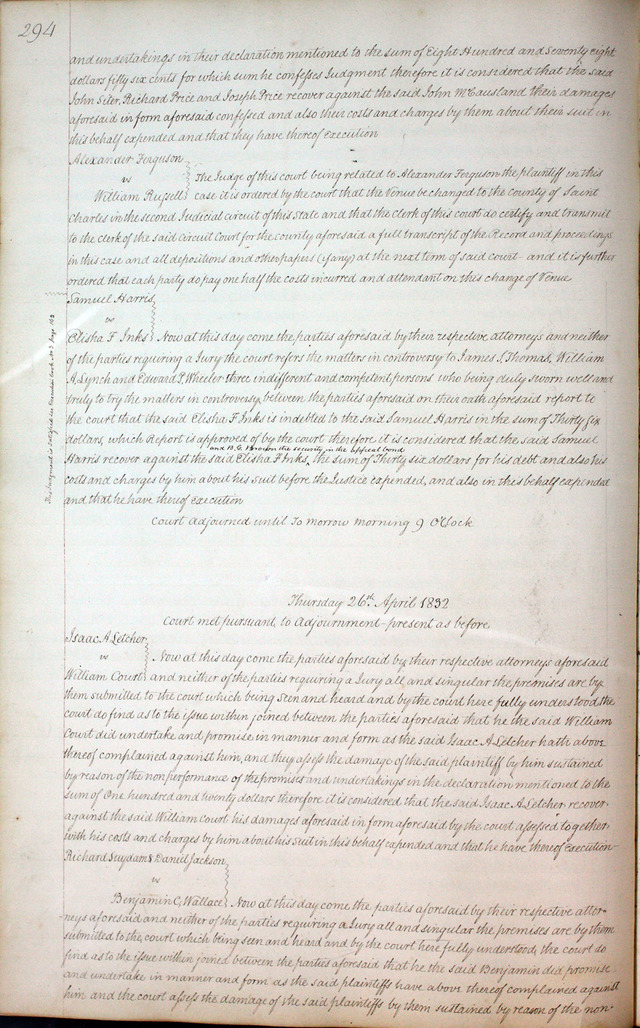 294
and undertakings in their declaration mentioned to the sum of Eight Hundred and Seventy eight
dollars fifty six cents for which sum he confesses Judgment therefore it is considered that the said
John Siter, Richard Price and Joseph Price recover against the said John McCausland their damages
aforesaid in form aforesaid confessed and also their costs and charges by them about their suit in
this behalf expended and that they have thereof execution
Alexander Ferguson
vs The Judge of this court being related to Alexander Ferguson the plaintiff in this
William Russell case it is ordered by the court that the Venue be changed to the County of Saint
Charles in the second Judicial circuit of this State and that the clerk of this court do certify and transmit
to the clerk of the said Circuit Court for the county aforesaid a full transcript of the Record and proceedings
in this case and all depositions and other papers (if any) at the next term of said court - and it is further
ordered that each party do pay one half the costs incurred and attendant on this change of Venue
Samuel Harris
vs
Elisha F Inks Now at this day come the parties aforesaid by their respective attorneys and neither
of the parties requiring a Jury the court refers the matters in controversy to James S. Thomas, William
A Lynch and Edward P. Wheeler three indifferent and competent persons who being duly sworn well and
truly to try the matters in controversy between the parties aforesaid on their oath aforesaid report to
the court that the said Elisha F Inks is indebted to the said Samuel Harris in the sum of Thirty Six
dollars, which Report is approved of by the court therefore it is considered that the said Samuel
and B. G. Brown the security in the appeal bond
Harris recover against the said Elisha F Inks, the sum of Thirty six dollars for his debt and also his
costs and charges by him about his suit before the Justice expended, and also in this behalf expended
and that he have thereof execution
This Judgment is satisfied see Execution book No 3 page 163
Court adjourned until To morrow morning 9 O'Clock
Thursday 26th April 1832
Court met pursuant to adjournment - present as before
Isaac A Letcher
vs Now at this day come the parties aforesaid by their respective attorneys aforesaid
William Court and neither of the parties requiring a Jury all and singular the premises are by
them submitted to the court which being seen and heard and by the court here fully understood the
court do find as to the issue within joined between the parties aforesaid that he the said William
Court did undertake and promise in manner and form as the said Isaac A Letcher hath above
thereof complained against him, and they assess the damage of the said plaintiff by him sustained
by reason of the nonperformance of the promises and undertakings in the declaration mentioned to the
sum of One hundred and twenty dollars therefore it is considered that the said Isaac A Letcher recover
against the said William Court his damages aforesaid in form aforesaid by the court assessed together
with his costs and charges by him about his suit in this behalf expended and that he have thereof execution
Richard Suydam & Daniel Jackson
vs
Benjamin C, Wallace Now at this day come the parties aforesaid by their respective attor-
neys aforesaid and neither of the parties requiring a Jury all and singular the premises are by them
submitted to the court which being seen and heard and by the court here fully understood, the court do
find as to the issue within joined between the parties aforesaid that he the said Benjamin did promise
and undertake in manner and form as the said plaintiffs have above thereof complained against
him and the court assess the damage of the said plaintiffs by them sustained by reason of the non-